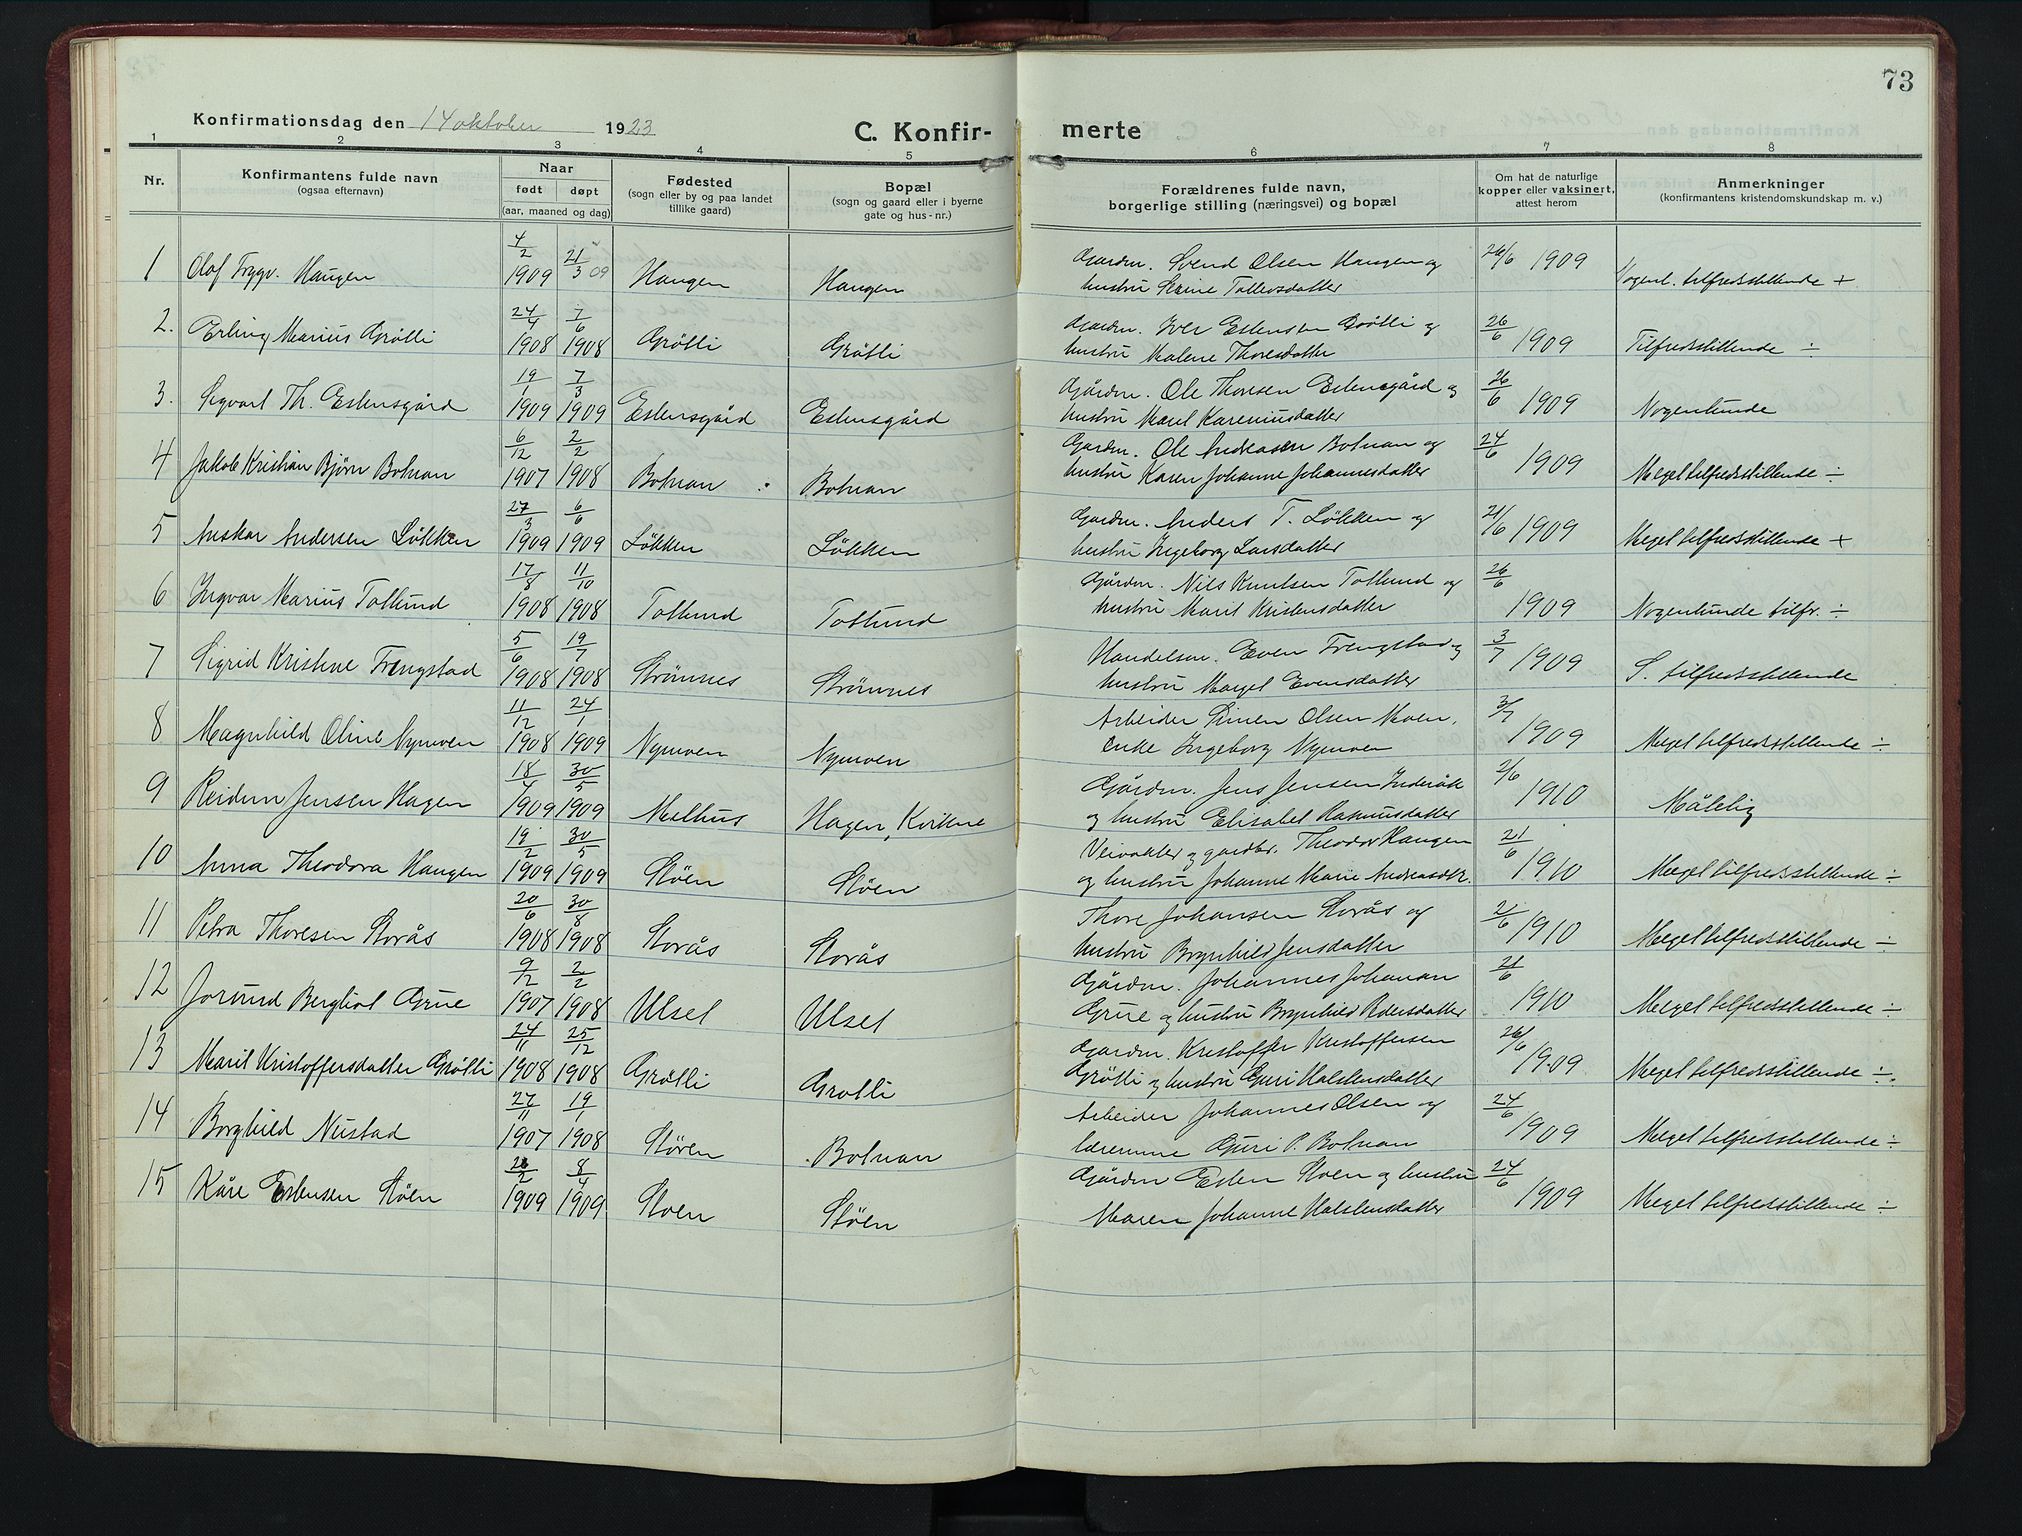 73
Konfirmationsdag den 14 oktober 1923
C. Konfirmerte
1 2 3 4 5 6 7 8
Nr. Konfirmantens fulde navn (ogsaa efternavn) Naar født døpt (aar, maaned og dag) Fødested (sogn eller by og paa landet tillike gaard) Bopæl (sogn og gaard eller i byerne gate og hus-nr.) Forældrenes fulde navn, borgerlige stilling (næringsvei) og bopæl Om hat de naturlige kopper eller vaksinert, attest herom Anmerkninger (konfirmantens kristendomskundskap m. v.)
1 Olof Trygv. Haugen 4/2 1909 21/3 09 Haugen Haugen Gardm. Svend Olsen Haugen og 26/6 1909 Nogenl. tilfredsstillende +
hustru Tollevsdatter
2. Erling Marius Grötli 24/4 1908 7/6 1908 Grötli Grötli Gardm. Iver Estensen Grötli og 26/6 1909 Tilfredsstillende ÷
hustru Malene Thoresdatter
3. Sigvart Th. Estensgård 19/1 1909 7/3 1909 Estensgård Estensgård Gårdm. Ole Thoresen Estensgård og 26/6 1909 Nogenlunde
hustru Marit Kareniusdatter
4 Jakob Kristian Bjørn Botnan 6/12 1907 2/2 1908 Botnan Botnan Gardm. Ole Andreasen Botnan og 24/6 1909 Meget tilfredsstillende ÷
hustru Karen Johanne Johannesdatter
5 Anskar Andersen Løkken 27/3 1909 6/6 1909 Løkken Løkken Gardm. Anders T. Løkken og 21/6 1909 Meget tilfredsstillende +
hustru Ingeborg Larsdatter
6 Ingvar Marius Tollund 17/8 1908 11/10 1908 Tollund Tollund Gårdm. Nils Knutsen Tollund og 26/6 1909 Nogenlunde tilfr. ÷
hustru Marit Kristensdatter
7 Sigrid Kristine Frengstad 5/6 1908 19/7 1908 Strömnes Strömnes Handelsm. Even Frengstad og 3/7 1909 S. tilfredsstillende
hustru Marget Evensdatter
8 Magnhild Oline Nymoen 11/12 1908 24/1 1909 Nymoen Nymoen Arbeider Simen Olsen Moen, 3/7 1909 Meget tilfredsstillende ÷
enke Ingeborg Nymoen
9 Reidun Jensen Hagen 18/4 1909 30/5 1909 Melhus Hagen, Kvikne Gårdm. Jens Jensen 2/6 1910 Målelig
og hustru Elisabet Rasmusdatter
10 Anna Theodora Haugen 19/2 1909 30/5 1909 Støen Støen Veivokter og gardbr. Theodor Haugen 21/6 1910 Meget tilfredsstillende ÷
og hustru Johanne Marie Andreasdtr.
11 Petra Thoresen Storås 20/6 1908 30/8 1908 Storås Storås Thore Johansen Storås og 21/6 1910 Meget tilfredsstillende ÷
hustru Brynhild Jensdatter
12 Jorund Bergliot Grue 9/12 1907 2/2 1908 Ulset Ulset Gårdm. Johannes Johanan 21/6 1910 Meget tilfredsstillende ÷
Grue og hustru Brynhild Pedersdatter
13 Marit Kristoffersdatter Grötli 24/11 1908 25/12 1908 Grötli Grotli Gardm. Kristoffer Kristoffersen 26/6 1909 Meget tilfredsstillende ÷
Grötli og hustru Guri Halstensdatter
14 Borghild Neistad 27/11 1907 19/1 1908 Støren Botnan Arbeider Johannes Olsen og 24/6 1909 Meget tilfredsstillende ÷
lærerinne Guri P. Botnan
15 Kåre Estensen Støen 2/2 1909 8/4 1909 Stoen Støen Gårdm Esten Stoen og hustru 24/6 1909 Meget tilfredsstillende ÷
Maren Johanne Halstensdatter